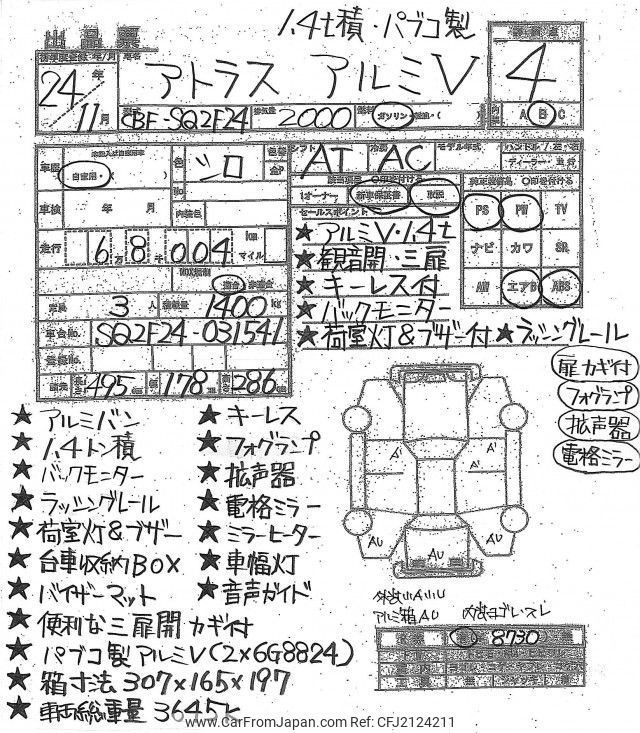 1.4t積・パブコ製
出品票
24年 11月
アトラス アルミV
4
CBF-SQ2F24 2000 ガソリン
A B C
自家用
シロ
AT AC
モデル年式
ディーラー
車検 年 月
内装色
新車保証書 取説
セールスポイント
PS PW TV
走行 6万8千004 km マイル
★アルミV・1.4t
ナビ カワ SR
★観音開・三扉
★キーレス付
AW エアB ABS
定員 3人 積載量 1400 kg
★バックモニター
車台No. SQ2F24-031541
★荷室灯&ブザー付 ★ラッシングレール
登録No.
扉カギ付
495 178 286
フォグランプ
拡声器
電格ミラー
★アルミバン ★キーレス
★1.4トン積 ★フォグランプ
★バックモニター ★拡声器
★ラッシングレール ★電格ミラー
★荷室灯&ブザー ★ミラーヒーター
★台車収納BOX ★車幅灯
★バイザーマット ★音声ガイド
★便利な三扉開カギ付
★パブコ製アルミV(2×6G8824)
★箱寸法307×165×197
★車両総重量3645k
A' A'
A' A'
AU AU AU
アルミ箱AU 内装ヨゴレスレ
8730
www.CarFromJapan.com Ref: CFJ2124211